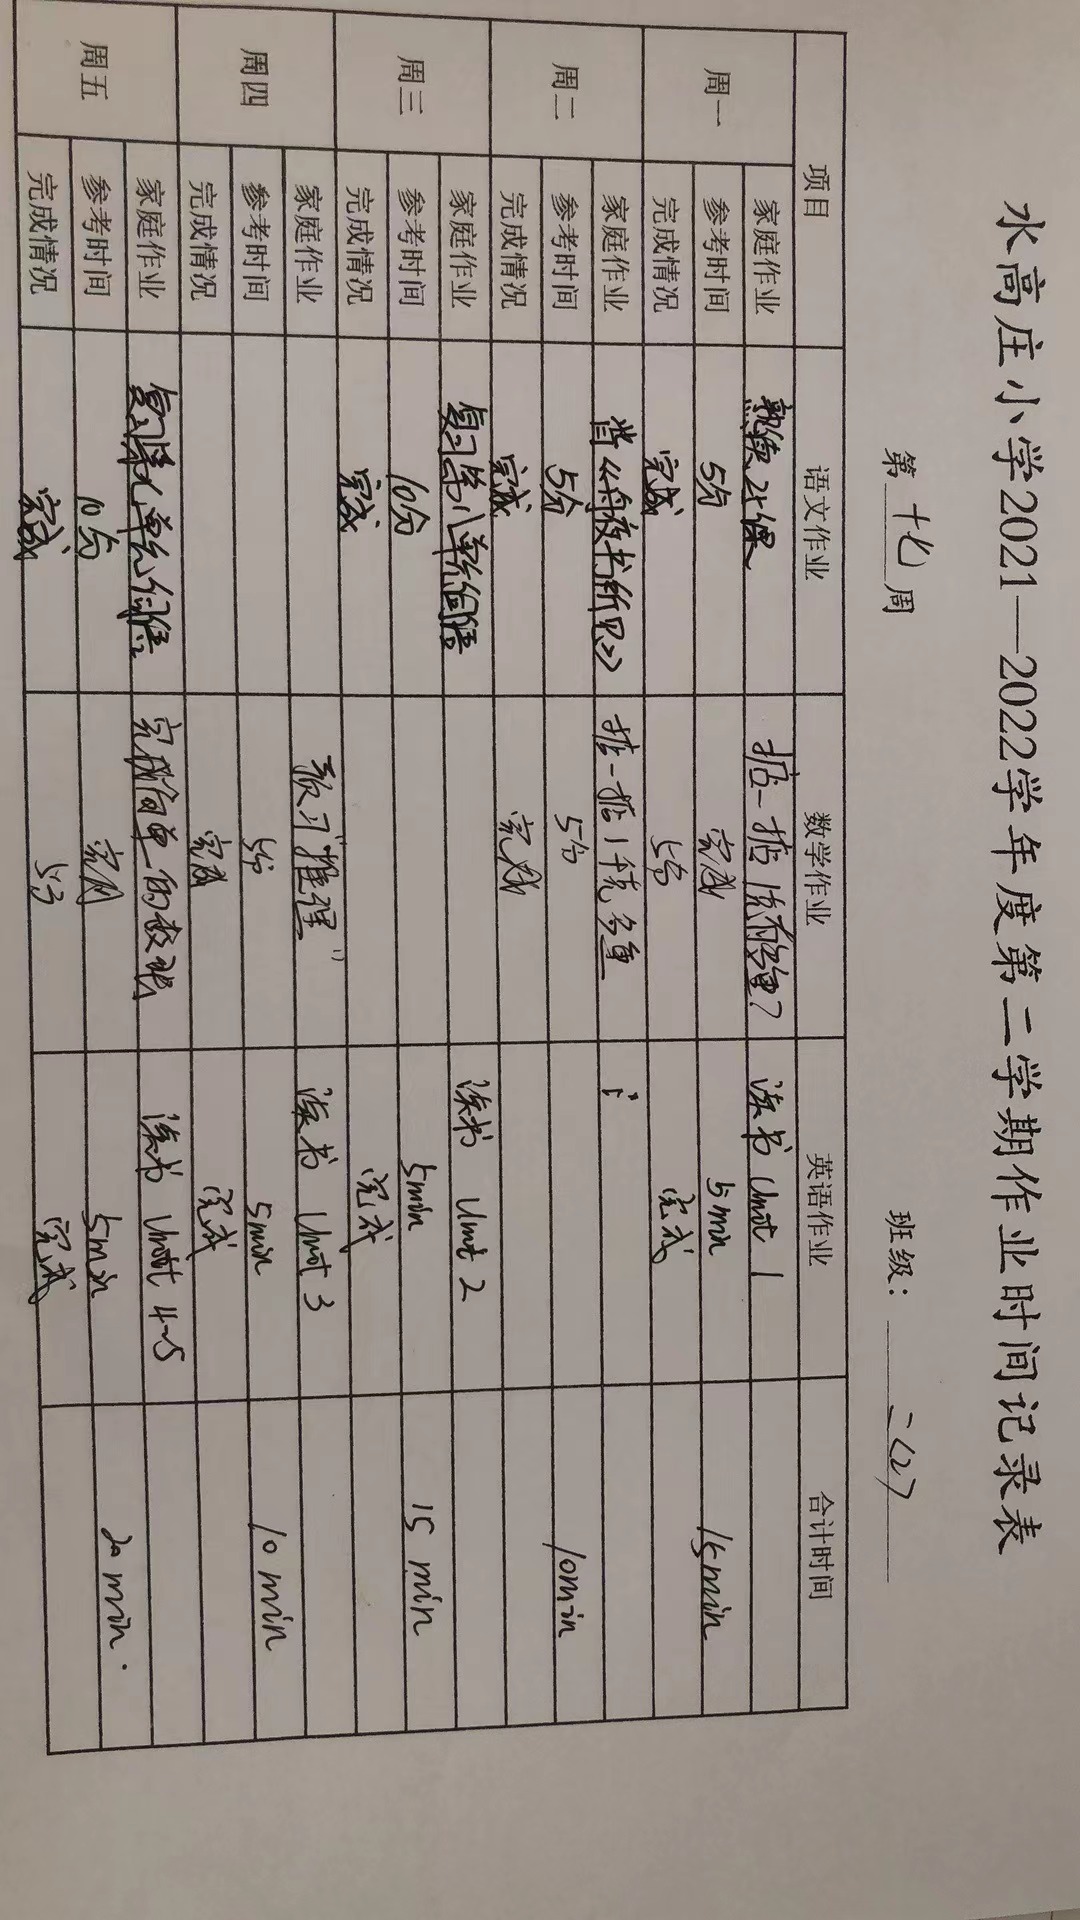 水高庄小学2021—2022学年度第二学期作业时间记录表
第 十七 周 班级: 二(2)
项目 语文作业 数学作业 英语作业 合计时间
周一 家庭作业 熟读25课 掂一掂 读书 Unit 1
参考时间 5分 完成 5min 15min
完成情况 完成 5分 完成
周二 家庭作业 背《舟夜书所见》 掂一掂1千克多重
参考时间 5分 5分 10min
完成情况 完成 完成
周三 家庭作业 复习第八单元 读书 Unit 2
参考时间 10分 5min 15 min
完成情况 完成 完成
周四 家庭作业 预习"推理" 读书 Unit 3
参考时间 5分 5min 10 min
完成情况 完成 完成
周五 家庭作业 复习第八单元 完成简单的数独 读书 Unit 4~5
参考时间 10分 完成 5min 20 min.
完成情况 完成 5分 完成